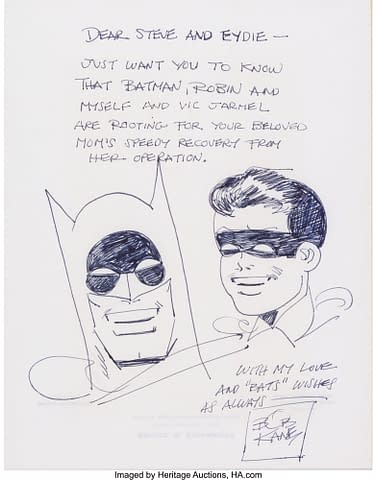 DEAR STEVE AND EYDIE —
JUST WANT YOU TO KNOW
THAT BATMAN, ROBIN AND
MYSELF AND VIC JARMEL
ARE ROOTING FOR YOUR BELOVED
MOM'S SPEEDY RECOVERY FROM
HER OPERATION.
WITH MY LOVE
AND "BATS" WISHES
AS ALWAYS —
BOB
KANE
Imaged by Heritage Auctions, HA.com